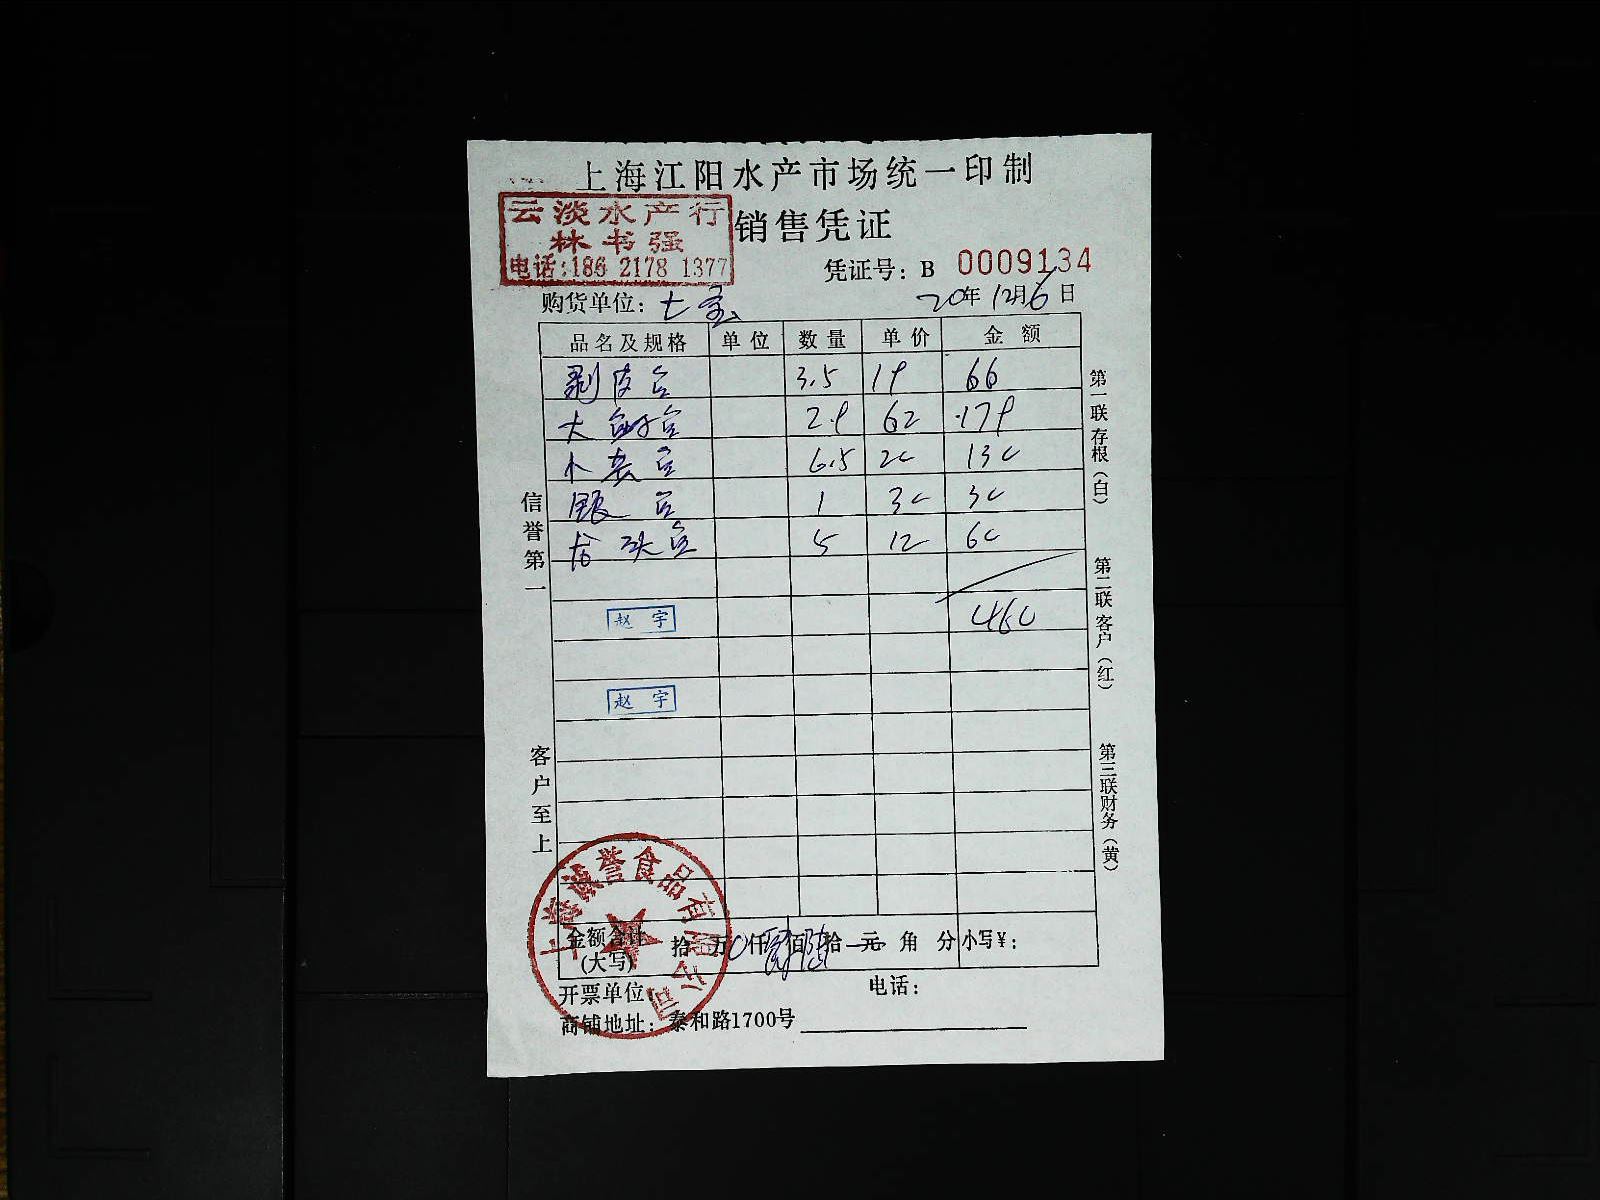 上海江阳水产市场统一印制
云淡水产行
林书强
电话:186 2178 1377
销售凭证
凭证号: B 0009134
购货单位: 七宝
20年12月6日
品名及规格 单位 数量 单价 金额
剥皮鱼 3.5 19 66
大 鱼 2.9 62 179
小 鱼 6.5 20 130
银鱼 1 30 30
龙头鱼 5 12 60
460
赵宇
赵宇
信誉第一
客户至上
第一联存根(白)
第二联客户(红)
第三联财务(黄)
上海 诚誉食品有限公司
金额合计
(大写)
拾 万0仟肆佰陆拾 元 角 分
小写¥:
开票单位:
电话:
商铺地址: 泰和路1700号